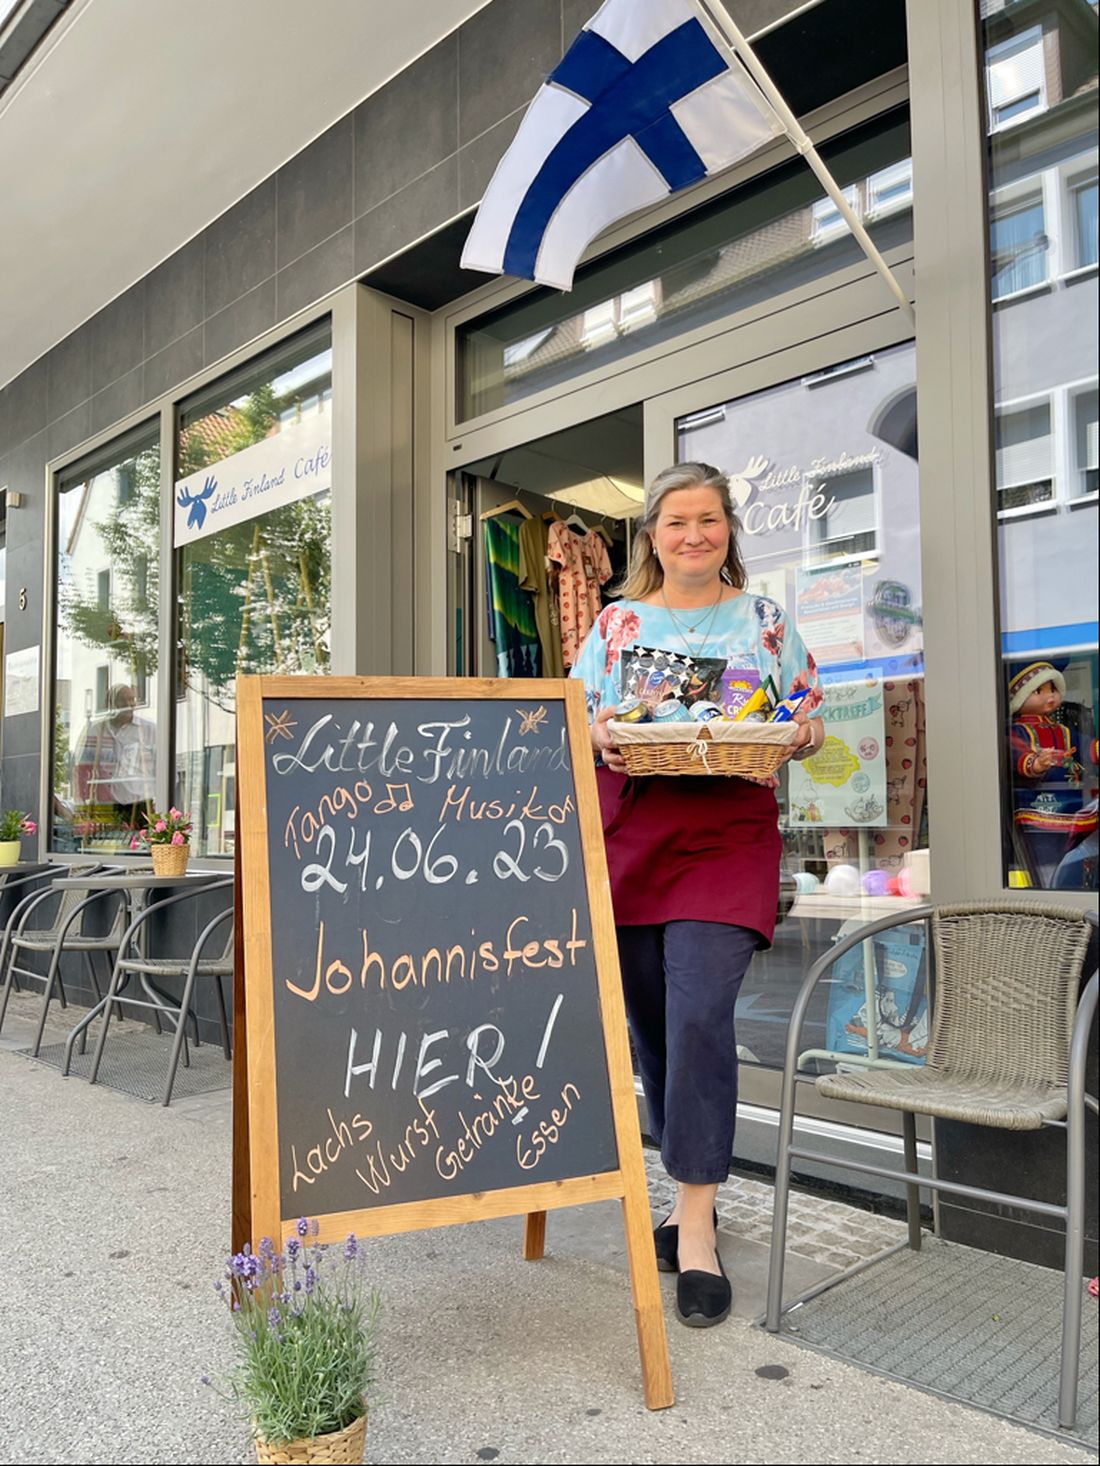 Little Finland Café
Little Finland
Café
5
Little Finland
Tango Musik
24.06.23
Johannisfest
HIER!
Lachs
Wurst
Getränke
Essen